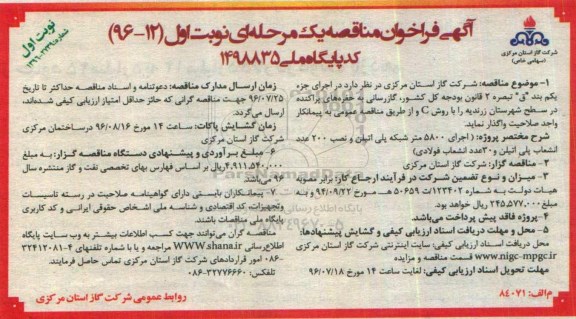 آگهی فراخوان مناقصه یک مرحله‌ای نوبت اول (۱۲-۹۶)
کد پایگاه ملی ۱۴۹۸۸۳۵
نوبت اول
شرکت گاز استان مرکزی
(سهامی خاص)
۱- موضوع مناقصه: شرکت گاز استان مرکزی در نظر دارد در اجرای جزء
یکم بند "ق" تبصره ۲ قانون بودجه کل کشور، گازرسانی به حفره‌های پراکنده
در سطح شهرستان زرندیه را با روش C و از طریق مناقصه عمومی به پیمانکار
واجد صلاحیت واگذار نماید.
شرح مختصر پروژه: (اجرای ۵۸۰۰ متر شبکه پلی اتیلن و نصب ۲۰۰ عدد
انشعاب پلی اتیلن و ۳۰عدد انشعاب فولادی)
۲- مناقصه گزار: شرکت گاز استان مرکزی
۳- میزان و نوع تضمین شرکت در فرآیند ارجاع کار: برابر مصوبه
هیات دولت به شماره ۱۲۳۴۰۲/ت ۵۰۶۵۹ هـ مورخ ۹۴/۰۹/۲۲ و به
مبلغ ۲۴۵،۵۷۷،۰۰۰ ریال خواهد بود.
۴- پروژه فاقد پیش پرداخت می‌باشد.
۵- محل و مهلت دریافت اسناد ارزیابی کیفی و گشایش پیشنهادها:
محل دریافت اسناد ارزیابی کیفی: سایت اینترنتی شرکت گاز استان مرکزی
www.nigc-mpgc.ir قسمت مناقصه و مزایده
مهلت تحویل اسناد ارزیابی کیفی: لغایت ساعت ۱۴ مورخ ۹۶/۰۷/۱۸
زمان ارسال مدارک مناقصه: دعوتنامه و اسناد مناقصه حداکثر تا تاریخ
۹۶/۰۷/۲۵ جهت مناقصه گرانی که حائز حداقل امتیاز ارزیابی کیفی شده‌اند،
ارسال می‌گردد.
زمان گشایش پاکات: ساعت ۱۴ مورخ ۹۶/۰۸/۱۶ در ساختمان مرکزی
شرکت گاز استان مرکزی
۶- مبلغ برآوردی و پیشنهادی دستگاه مناقصه گزار: به مبلغ
۴،۹۱۱،۵۴۰،۰۰۰ ریال بر اساس فهارس بهای تخصصی نفت و گاز منتشره سال
۹۶ می‌باشد.
۷- پیمانکاران بایستی دارای گواهینامه صلاحیت در رسته تاسیسات
وتجهیزات، کد اقتصادی و شناسه ملی اشخاص حقوقی ایرانی و کد کاربری
پایگاه ملی مناقصات باشند.
مناقصه گران می‌توانند جهت کسب اطلاعات بیشتر به وب سایت پایگاه
اطلاع‌رسانی WWW.shana.ir مراجعه و یا با شماره تلفنهای ۴-۳۲۴۱۲۰۸۱
-۰۸۶ امور قراردادهای شرکت گاز استان مرکزی تماس حاصل فرمایند.
تلفکس: ۳۲۲۷۶۶۶۰-۰۸۶
روابط عمومی شرکت گاز استان مرکزی
م الف: ۸۴۰۷۱